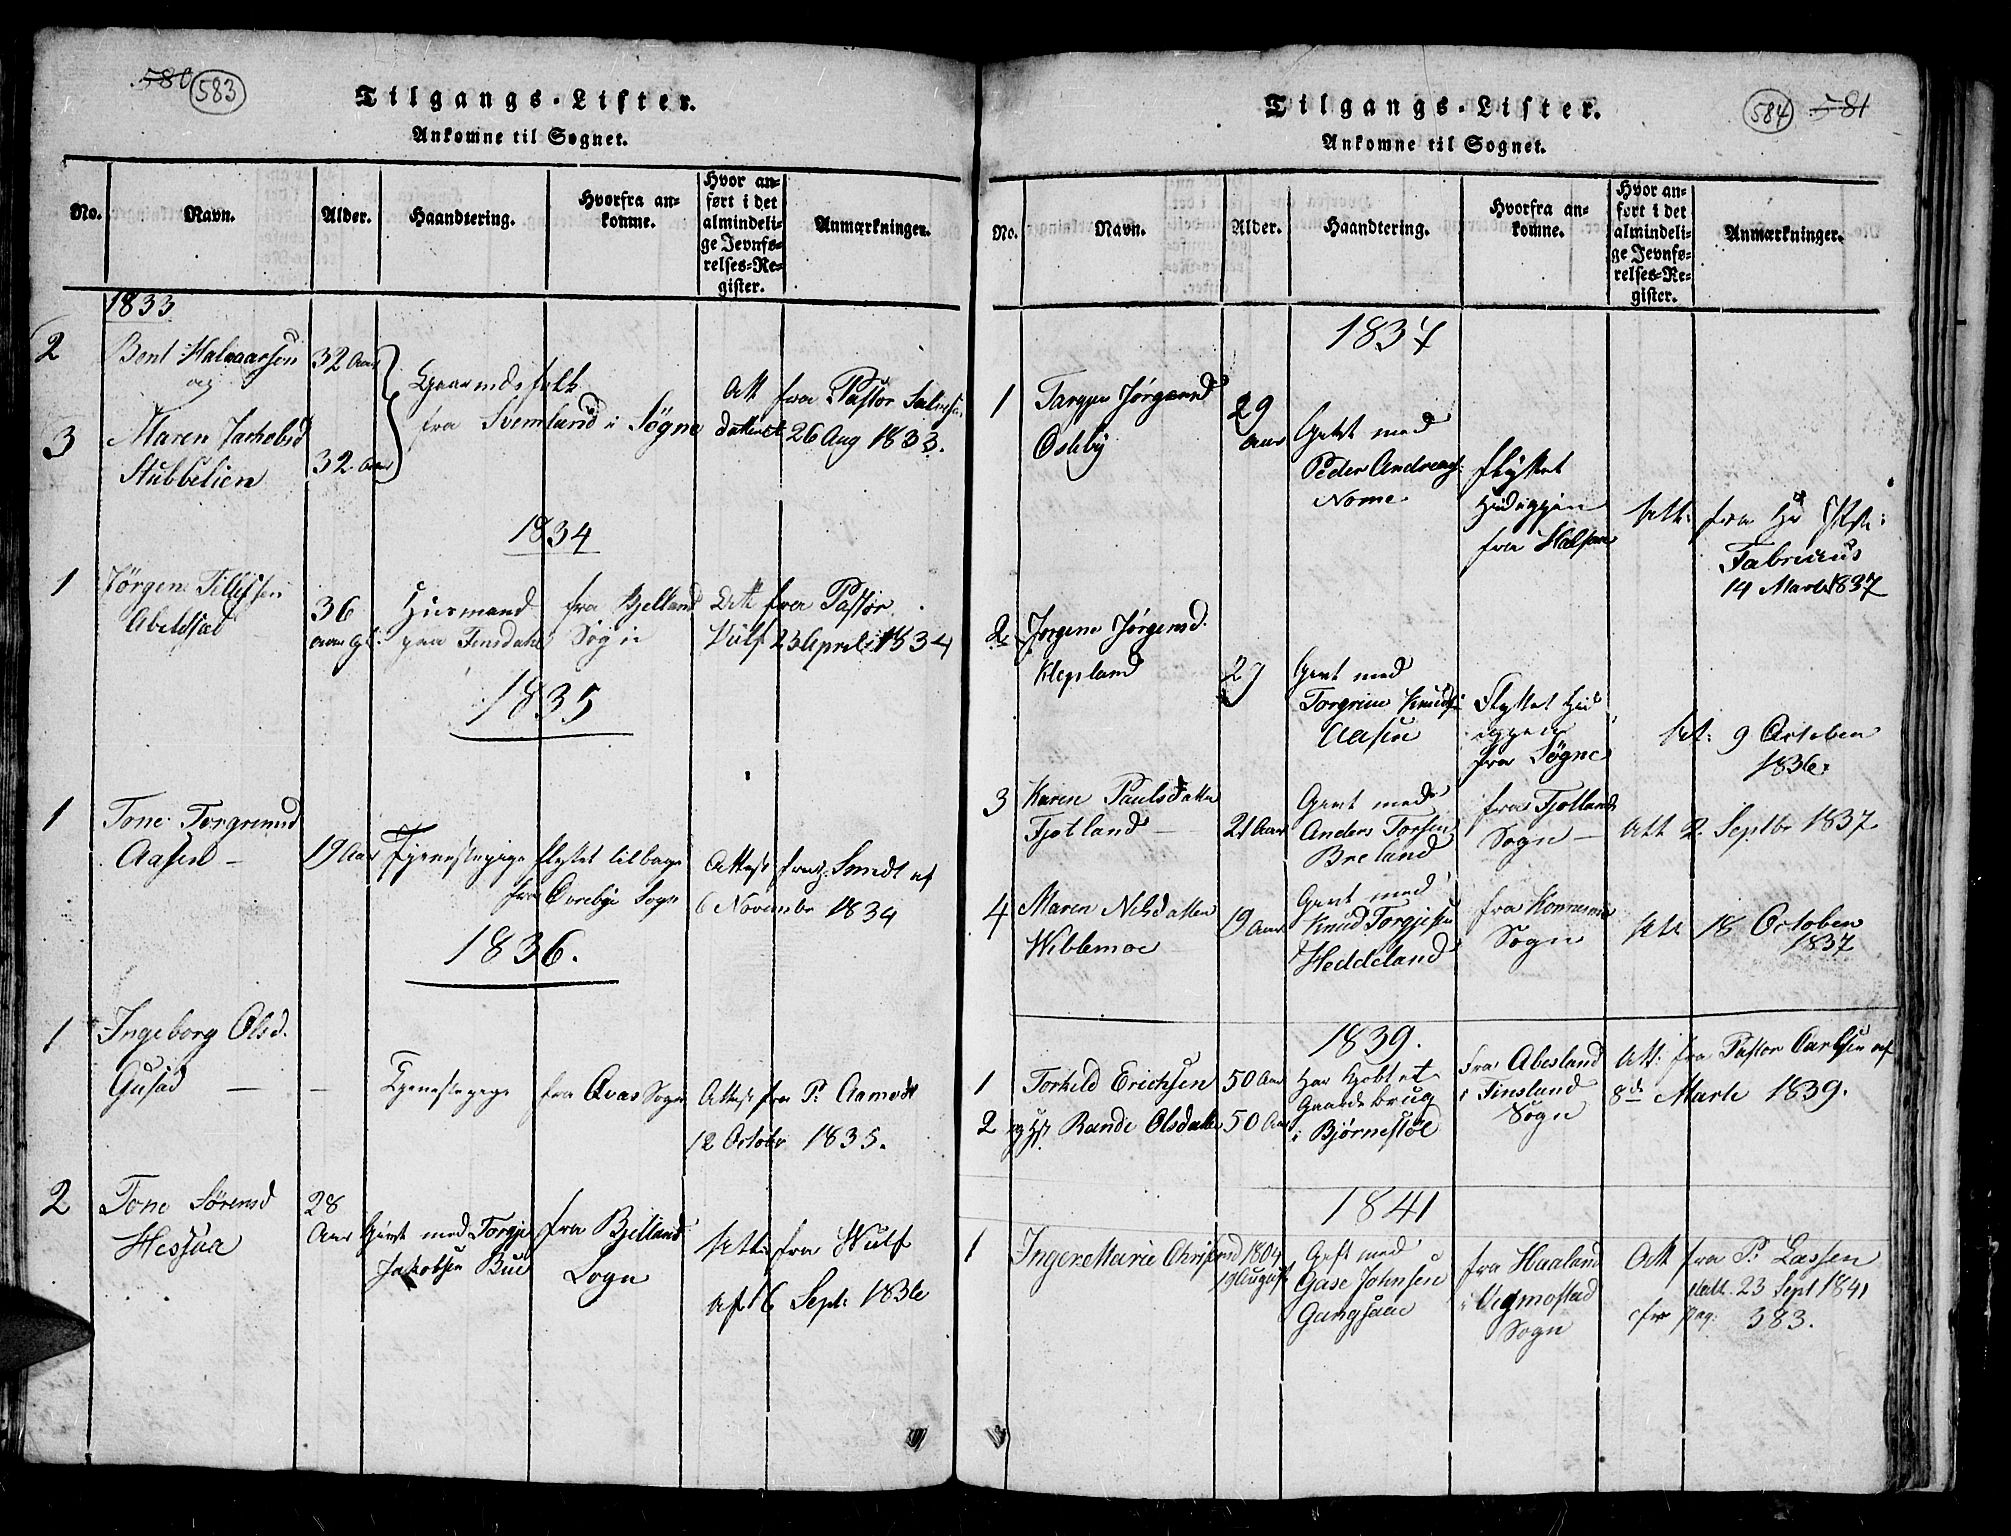 580 583
Tilgangs-Lister.
Ankomne til Sognet.
No. Navn. Alder. Haandtering. Hvorfra ankomne. Hvor anført i det almindelige Jevnførelses-Register. Anmærkninger.
1833
2 Bent Halvaarsen 32 Aar
og
3 Maren Jackobsd 32 Aar
Stubbelien
Gaarmdsfolk
fra Svemland i Søgne
Att fra Pastor
dateret 26 Aug 1833.
1834
1 Jørgen Tellefsen 36
Abelstad Aar
Huusmand fra Bjelland Att fra Pastor
paa Finsdal Sogn Vulf 23 April 1834
1835
1 Tone Torgrimsd
Aasen - 19 Aar Tjenestepige flyttet tilbage Attest fra Smidt af
fra Øvrebye Sogn 6 November 1834
1836.
1 Ingeborg Olsd.
Gusad — - Tjenestepige fra Qvas Sogn Attest fra P: Aamodt
12 October 1835.
2 Tone Sørensd 28
Hessaa Aar Givt med Torgje fra Bjelland Att: fra Wulf
Jakobsen Bue Sogn af 16 Sept: 1836
584 581
Tilgangs-Lister.
Ankomne til Sognet.
No. Navn. Alder. Haandtering. Hvorfra ankomne. Hvor anført i det almindelige Jevnførelses-Register. Anmærkninger.
1837
1 Targjer Jørgensd 29
Osteby Aar Givt med
Peder Andreas
Nome
flyttet
hid igjen
fra Halsaa
Att: fra Hr
Fabricius
14 Marts 1837
2 Jørgine Jørgensd.
Klepland 27 Givt med
Torgrim Knuds
Aasen
Flyttet hid
igjen
fra Søgne
Att: 9 October
1836.
3 Karen Paulsdatter Givt med fra Fjotland
Fjotland — 21 Aar Anders Torsen Sogn — Att 2 Septbr 1837
Breland
4 Maren Nilsdatter 19 Aar Givt med
Viblemoe Knud Torgjesen
Heddeland
fra Konnesmo
Sogn Att 18 October
1837
1839.
1 Torkeld Erichsen 50 Aar Har kjøbt et fra Abesland Att: fra Pastor Carlsen af
2 og H. Rande Olsdatter 50 Aar Gaardebrug i Finsland 8de Marts 1839.
i Bjørnestøl Sogn
1841
1 Inger Marie Chrisensd 1804 Gift med fra Haaland Att fra P: Lassen
19 August Gase Johnsen i Vigmostad dat. 23 Sept 1841
Gangsaae Sogn cfr pag: 383.